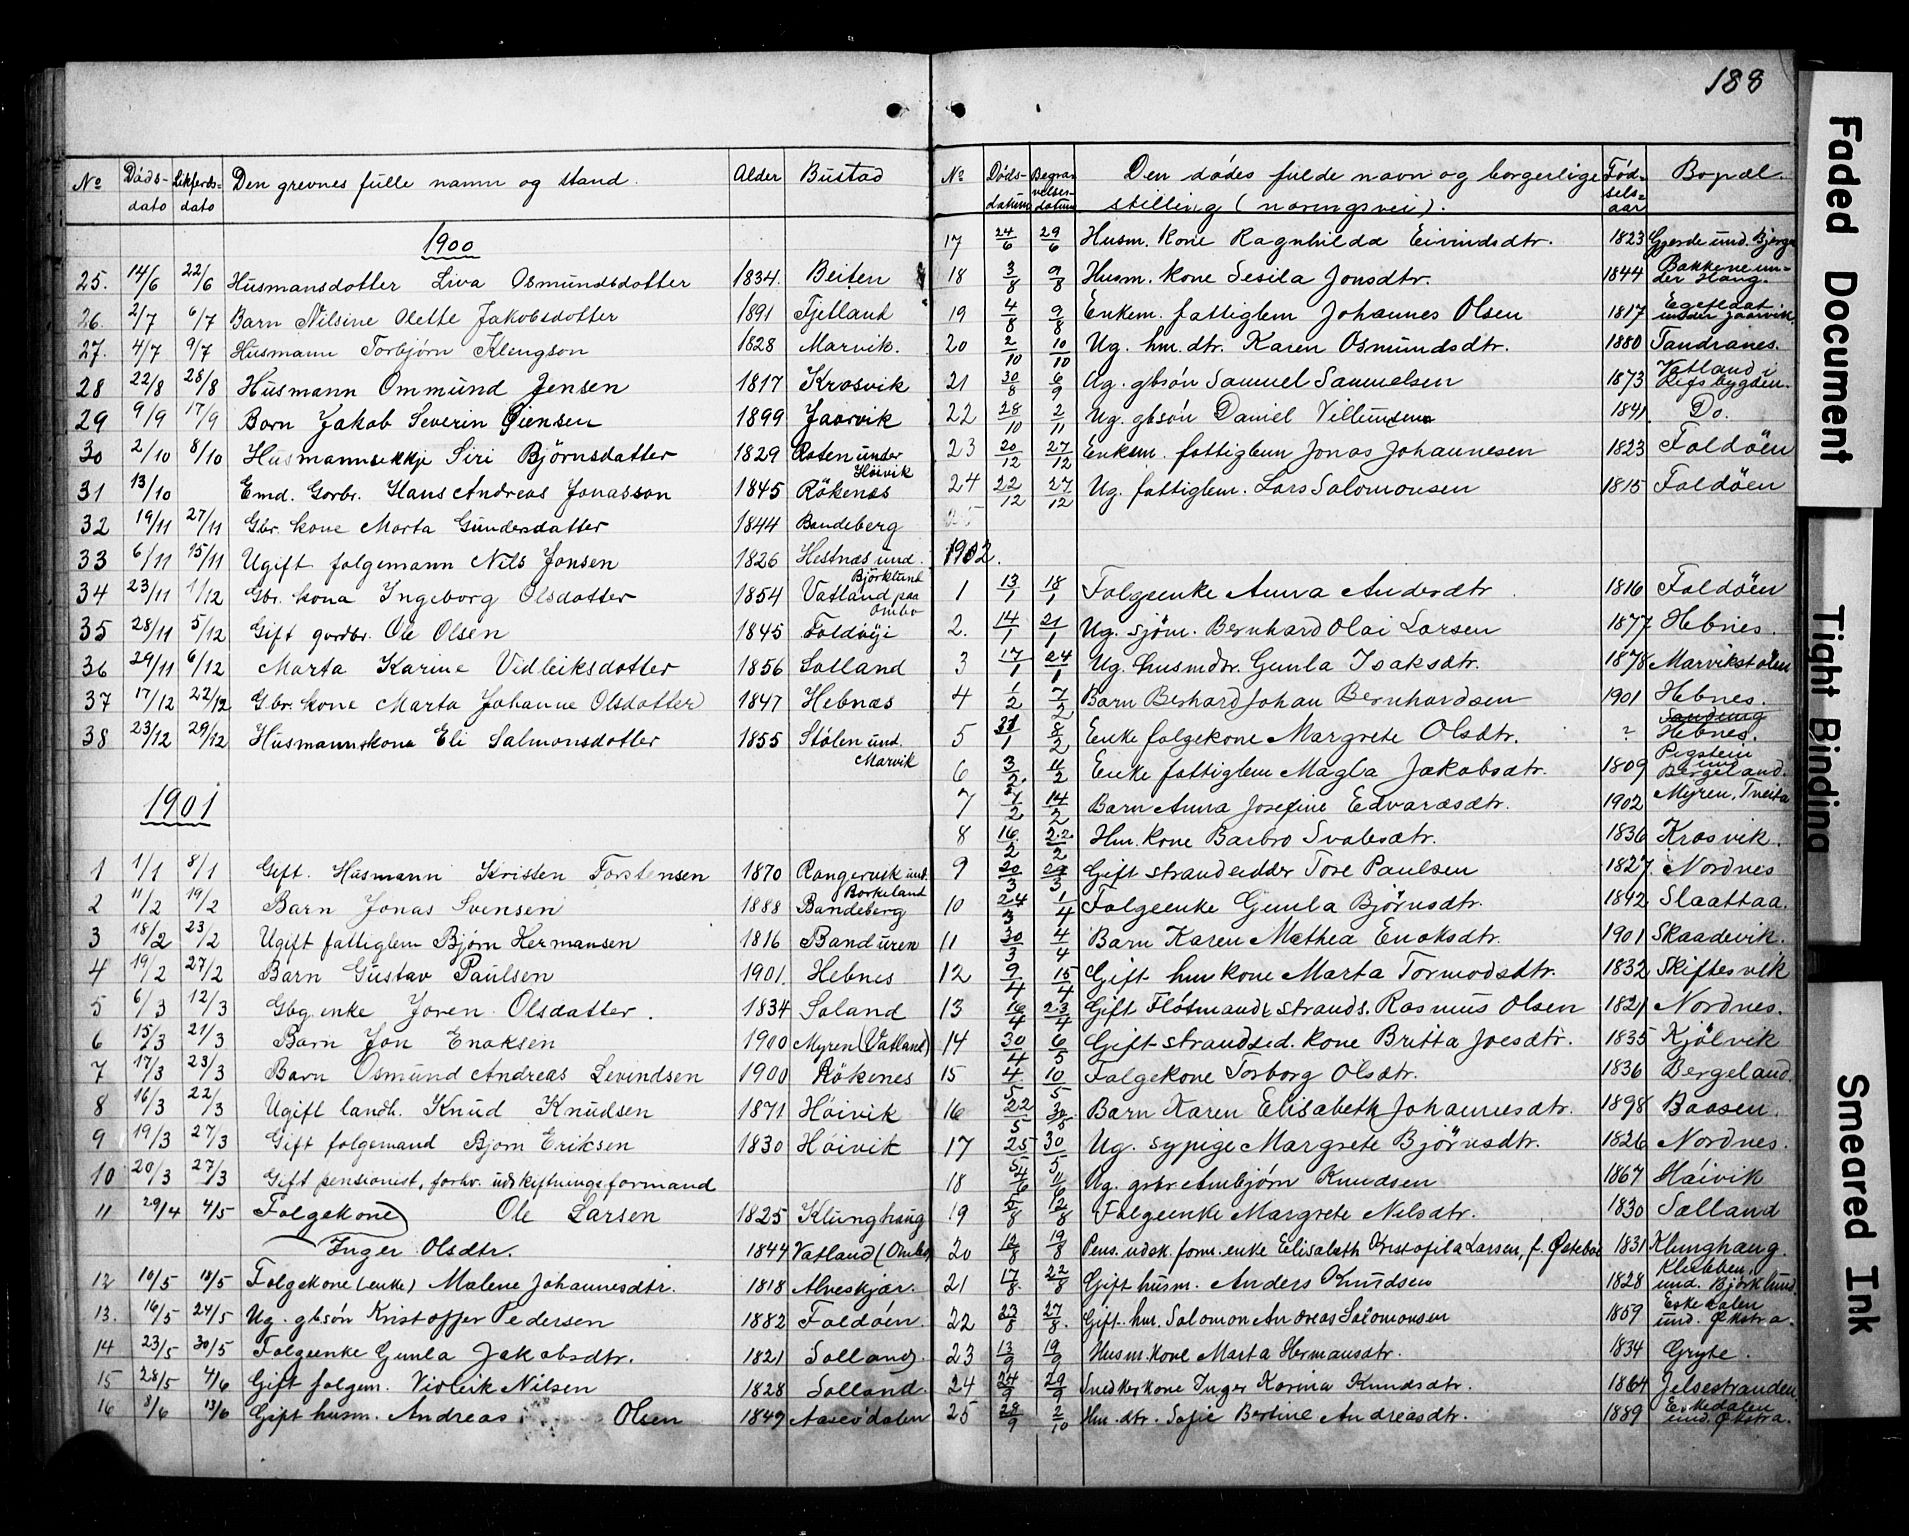 188
No Döds-dato Likferds-dato Den grevnes fulle namn og stand. Alder Bustad
1900
25. 14/6 22/6 Husmansdotter Liva Osmundsdotter 1834. Beiten
26. 2/7 6/7 Barn Nilsine Olette Jakobsdotter 1891 Fjetland
27. 4/7 9/7 Husmann Torbjørn Klengson 1828 Marvik.
28 22/8 28/8 Husmann Ommund Jensen 1817 Krosvik
29 9/9 17/9 Born Jakob Severin 1899 Jaarvik
30 2/10 8/10 Husmannsekkje Siri Björnsdatter 1829 Roten under Höivik
31 13/10 Emd. Gorbr. Hans Andreas Jonasson 1845 Rökenes
32 19/11 27/11 Gbr. kone Marta Gundersdatter 1844 Bandeberg
33 6/11 15/11 Ugift folgemann Nils Jonsen 1826 Hestnæs und. Björklund
34 23/11 1/12 Gbr. kona Ingeborg Olsdotter 1854 Vatland paa Ombo
35 28/11 5/12 Gift gordbr. Ole Olsen 1845 Foldöyi
36 29/11 6/12 Marta Karine Vidleiksdotter 1856 Solland
37 17/12 22/12 Gbr. kone Marta Johanne Olsdotter 1847 Hebnæs
38 23/12 29/12 Husmannskona Eli Salmonsdotter 1855 Stölen und. Marvik
1901
1 1/1 8/1 Gift. Husmann Kristen Torstensen 1870 Rangervik und. Borkeland
2 11/2 19/2 Barn Jonas Svensen 1888 Bandeberg
3 18/2 23/2 Ugift fattiglem Bjørn Hermansen 1816 Banduren
4 19/2 27/2 Barn Gustav Paulsen 1901. Hebnes
5 6/3 12/3 Gbg. enke Joren Olsdatter. 1834 Soland
6 15/3 21/3 Barn Jon Enoksen 1900 Myren (Vatland)
7 17/3 23/3 Barn Osmund Andreas Levindsen 1900 Rökenes
8 16/3 22/3 Ugift landh. Knud Knudsen 1871 Höivik
9 19/3 27/3 Gift folgemand Bjorn Eriksen 1830 Höivik
10 20/3 27/3 Gift pensionist, forhv. udskiftningsformand
11 29/4 4/5 Folgekone Ole Larsen 1825 Klunghaug
Inger Olsdtr. 1844 Vatland (Ombo)
12 10/5 18/5 Folgekone (enke) Malene Johannesdtr. 1818 Alveskjær.
13. 16/5 24/5 Ug. gbsön Kristoffer Pedersen 1882 Foldöen.
14 23/5 30/5 Folgeenke Gunla Jakobsdtr. 1821 Solland.
15 28/5 4/6 Gift folgem. Vidleik Nilsen 1828 Solland.
16 8/6 13/6 Gift husm. Andreas Olsen 1849
No Døds-datum Begravelses-datum Den dødes fulde navn og borgerlige stilling (næringsvei). Fødselsaar Bopæl.
17 24/6 29/6 Husm. kone Ragnhilda Eivindsdtr. 1823 Gjerde und. Bjerge
18 3/8 9/8 Husm. kone Sesila Jonsdtr. 1844 Bakkene under Haug.
19 4/8 9/8 Enkem. fattiglem Johannes Olsen 1817 under Jaarvik.
20 2/10 10/10 Ug. hm. dtr. Karen Osmundsdtr. 1880 Tandranes.
21 30/8 6/9 Ug. gbsön Samuel Samuelsen 1873 Vatland i
22 28/10 2/11 Ug. gbsön Daniel Villumsen 1841 Do.
23 20/12 27/12 Enkem. fattiglem Jonas Johannesen 1823 Foldöen
24 22/12 27/12 Ug. fattiglem. Lars Salomonsen 1815 Foldöen
1902.
1 13/1 18/1 Folgeenke Anna Andersdtr. 1816 Foldöen
2. 14/1 21/1 Ug. sjöm. Bernhard Olai Larsen 1877 Hebnes.
3 17/1 24/1 Ug. husmdtr. Gunla Isaksdtr. 1878 Marvikstölen
4 1/2 7/2 Barn Berhard Johan Bernhardsen 1901 Hebnes.
5 31/1 8/2 Enke folgekone Margrete Olsdtr. ? Hebnes.
6 3/2. 11/2 Enke fattiglem Magla Jakobsdtr. 1809 Bergeland.
7 7/2 14/2 Barn Anna Josefine Edvardsdtr. 1902 Myren, Tveita
8 16/2 22/2 Hm. kone Barbro Svalesdtr. 1836 Krosvik.
9 20/3 27/3 Gift strandsidder Tore Paulsen 1827. Nordnes
10 24/3 1/4 Folgeenke Gunla Björnsdtr. 1842 Slaattaa.
11 30/3 4/4 Barn Karen Mathea Enoksdtr. 1901 Skaadevik.
12 9/4 15/4 Gift hm kone Marta Tormodsdtr. 1832 Skiftesvik
13 16/4 23/4 Gift Fløtmand & strands. Rasmus Olsen 1821 Nordnes.
14 30/4 6/5 Gift strandsid. kone Britta Joesdtr. 1835 Kjölvik
15 4/5 10/5 Folgekone Torborg Olsdtr. 1836 Bergeland.
16 22/5 30/5 Barn Karen Elisabeth Johannesdtr. 1898 Baasen.
17 25/5 30/5 Ug. sypige Margrete Björnsdtr. 1826 Nordnes.
18 4/6 11/6 Ug. grbr. Ambjörn Knudsen 1867 Höivik
19 5/8 12/8 Folgeenke Margrete Nilsdtr. 1830 Sælland
20 12/8 19/8 Pens. udsk. form. enke Elisabeth Kristofila Larsen, f. Østebö 1831 Klunghaug.
21 17/8. 22/8 Gift husm. Anders Knudsen 1828 und. Björklund.
22 23/8 27/8. Gift. hm. Salomon Andreas Salomonsen 1859 Eskedalen und. Økstra.
23 13/9 19/9 Husm. kone Marta Hermansdtr. 1834 Gryte.
24 24/9 29/9 Snedkerkone Inger Karina Knudsdtr. 1864 Jelsestranden
25 28/9 2/10 Hm. dtr. Sofie Bertine Andreasdtr. 1889 Eskedalen und. Økstra.
Faded Document
Tight Binding
Smeared Ink